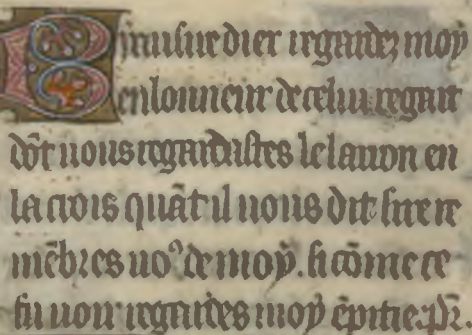 Biausire dieu regardez moy
en lonneur de celui regart
dōt uous regardastes le larron en
la crois quāt il uous dit sire re
mēbres uo⁹ de moy. si cōme ce
fu uoir regardes moy ē pitie.